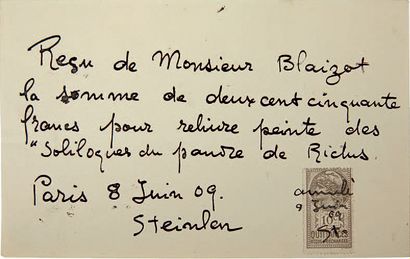 Reçu de Monsieur Blaizot
la somme de deux cent cinquante
francs pour reliure peinte des
"Soliloques du pauvre de Rictus.
Paris 8 Juin 09.
Steinlen
Juin
09
St.
10